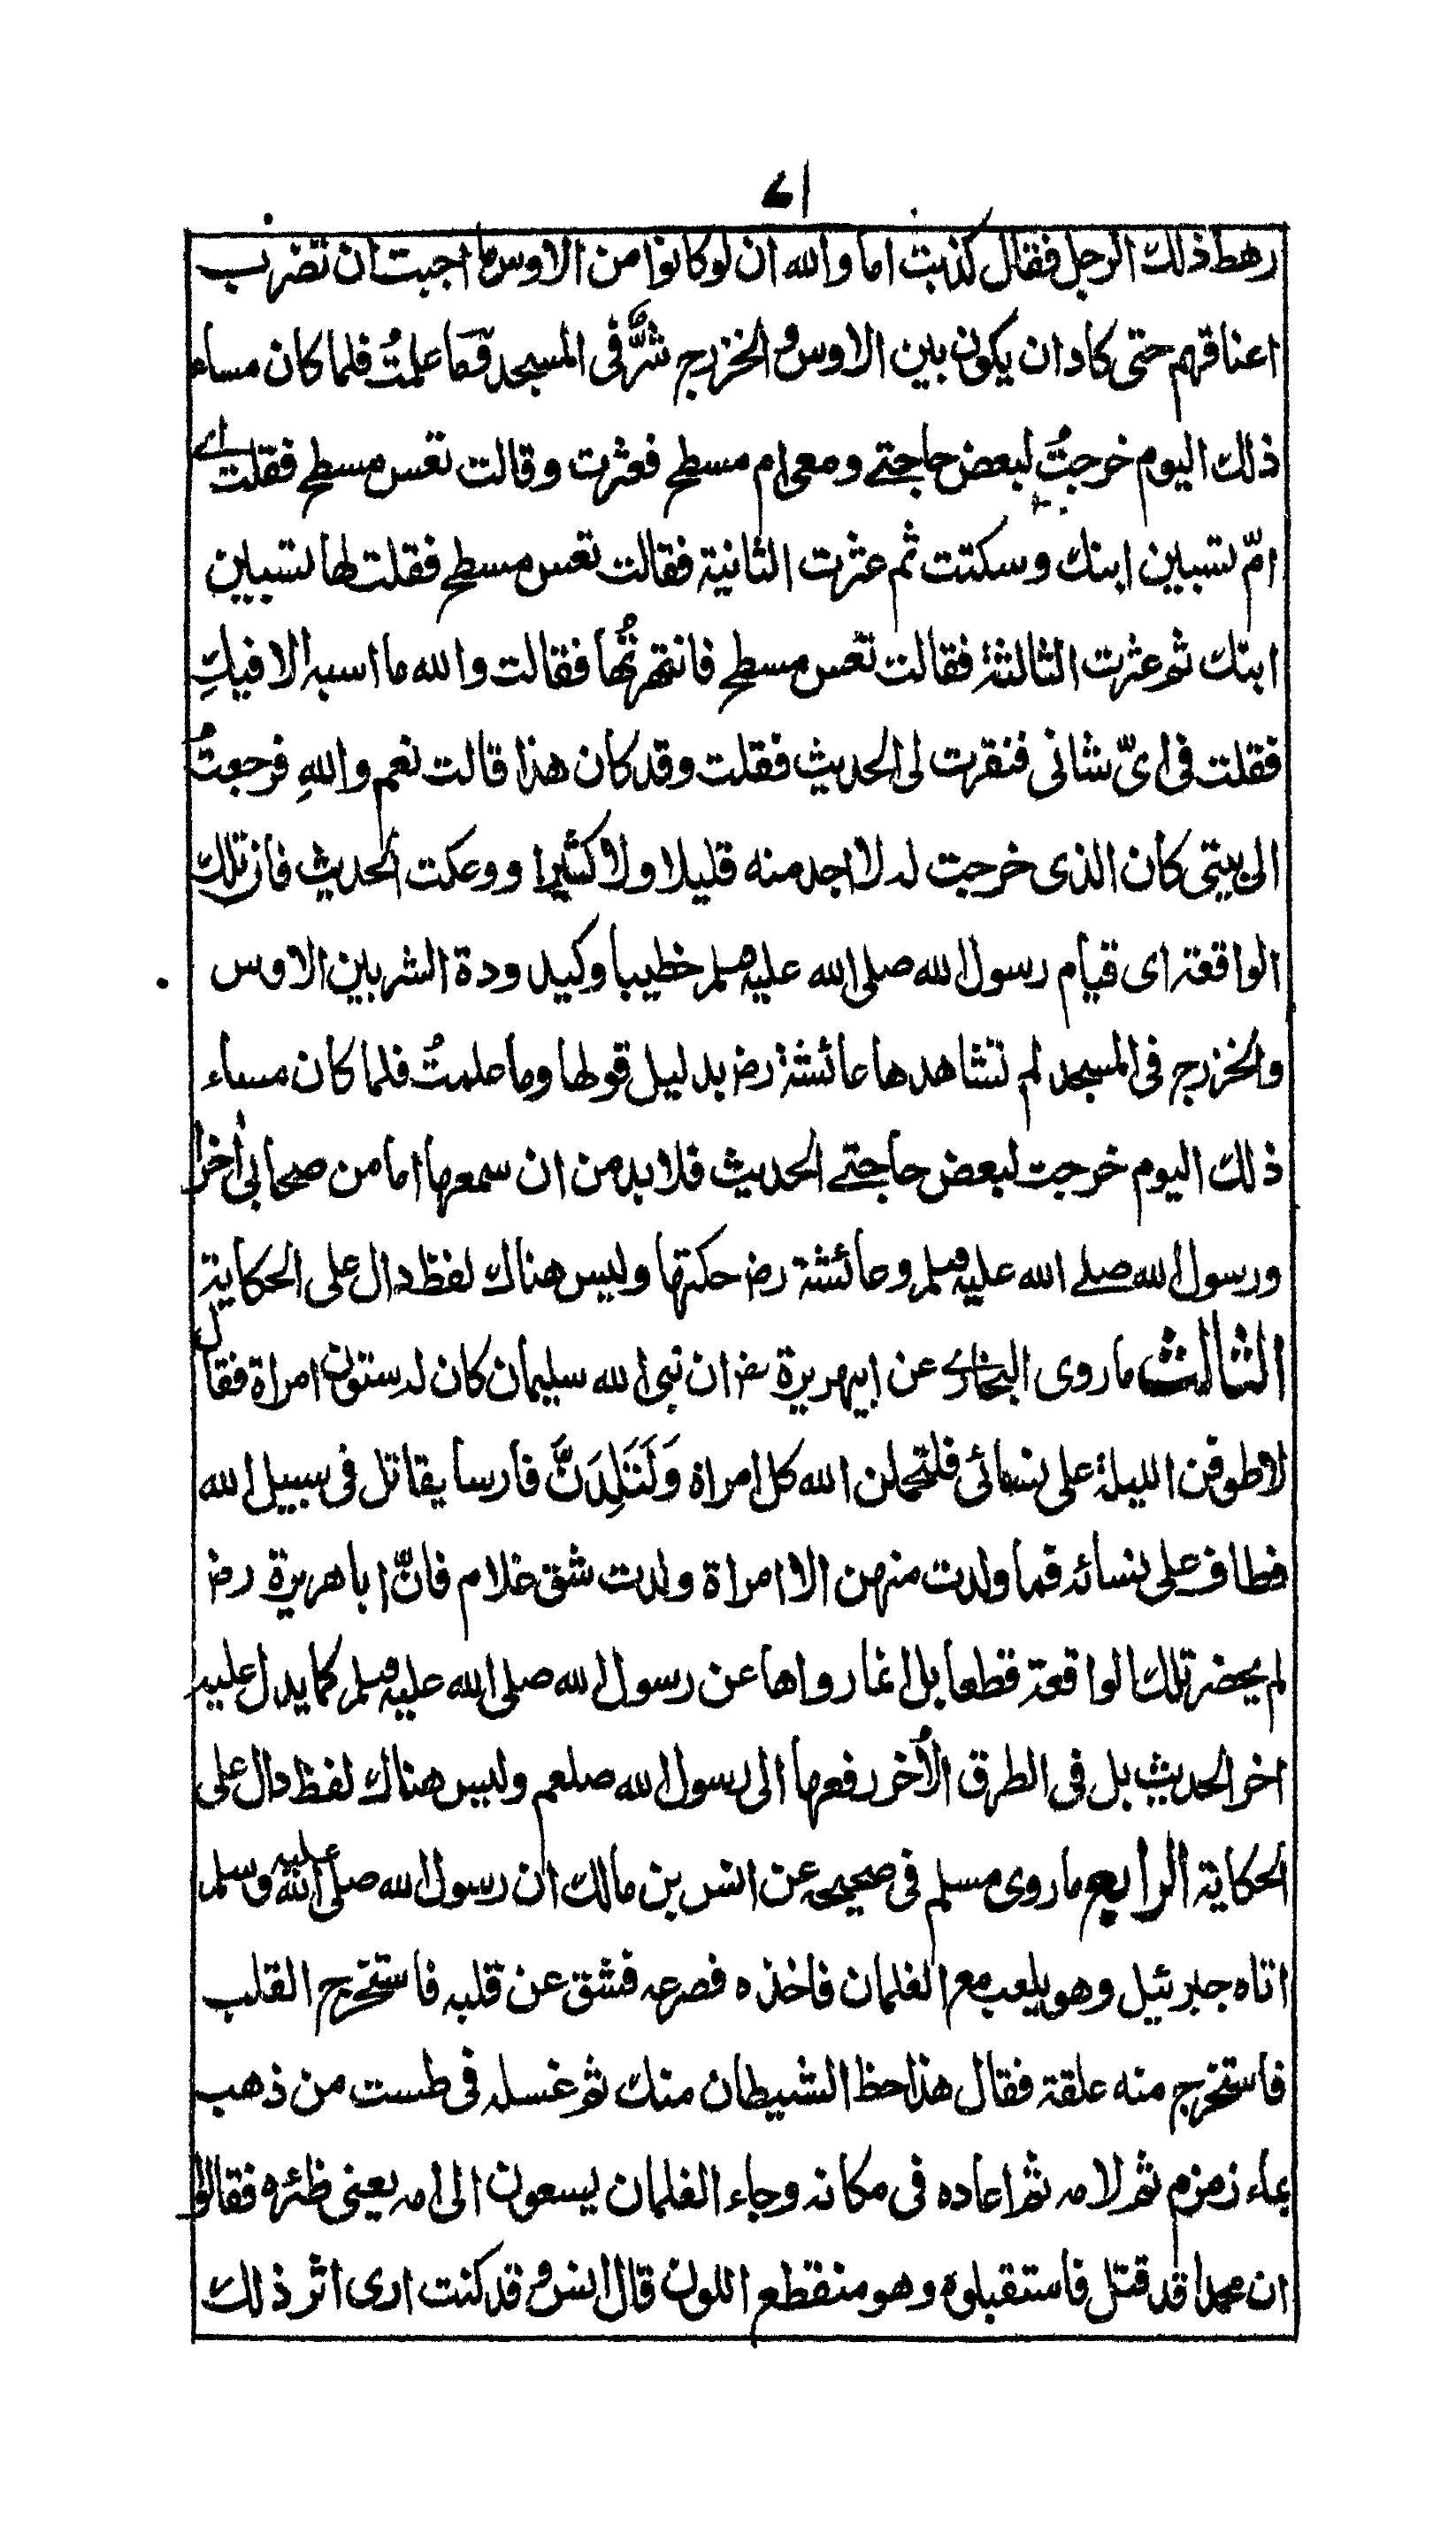 ١٦
رهط ذلك الرجل فقال كذبت اما والله ان لو كانوا من الاوس ما احببت ان تضرب
اعناقهم حتى كاد ان يكون بين الاوس و الخزرج شرٌّ فى المسجد وَمَا علمتُ فلما كان مساء
ذلك اليوم خرجتُ لبعض حاجتے ومعى ام مسطح فعثرت وقالت تعس مسطح فقلت اے
امّ تسبين ابنك وسكتت ثم عثرت الثانية فقالت تعس مسطح فقلت لها تسبين
ابنك ثم عثرت الثالثة فقالت تعس مسطح فانتهرتُها فقالت والله ما اسبه الا فيكِ
فقلت فى اىّ شانى فنقرت لى الحديث فقلت وقد كان هذا قالت نعم واللهِ فرجعتُ
الى بيتى كان الذى خرجت له لا اجد منه قليلا ولا كثيرا ووعكت الحديث فان تلك
الواقعة اى قيام رسول الله صلى الله عليه وسلم خطيبا وكيد ودة الشر بين الاوس
والخزرج فى المسجد لم تشاهدها عائشة رض بدليل قولها وما علمتُ فلما كان مساء
ذلك اليوم خرجت لبعض حاجتے الحديث فلا بد من ان سمعها اما من صحابى اٰخر ا
ورسول الله صلے الله عليه وسلم وعائشة رض حكتها وليس هناك لفظ دال على الحكاية
الثالث ما روى البخارے عن ابيهريرة رض ان نبى الله سليمان كان له ستون امراة فقال
لاطوفن الليلة على نسائى فلتحملن الله كل امراة وَلَتَلِدَنَّ فارسا يقاتل فى سبيل الله
فطاف على نسائه فما ولدت منهن الا امراة ولدت شق غلام فانّ ابا هريرة رض
لم يحضر تلك الواقعة قطعا بل انما رواها عن رسول الله صلى الله عليه وسلم كما يدل عليه
اخر الحديث بل فى الطرق الاُخر رفعها الى رسول الله صلعم وليس هناك لفظ دال على
الحكاية الرابع ما روى مسلم فى صحيحه عن انس بن مالك ان رسول الله صلى الله عليه وسلم
اتاه جبرئيل وهو يلعب مع الغلمان فاخذه فصرعه فشق عن قلبه فاستخرج القلب
فاستخرج منه علقة فقال هذا حظ الشيطان منك ثم غسله فى طست من ذهب
بماء زمزم ثم لامه ثم اعاده فى مكانه وجاء الغلمان يسعون الى امه يعنى ظئره فقالوا
ان محمدا قد قتل فاستقبلوه وهو منتقع اللون قال انس و قد كنت ارى اثر ذلك